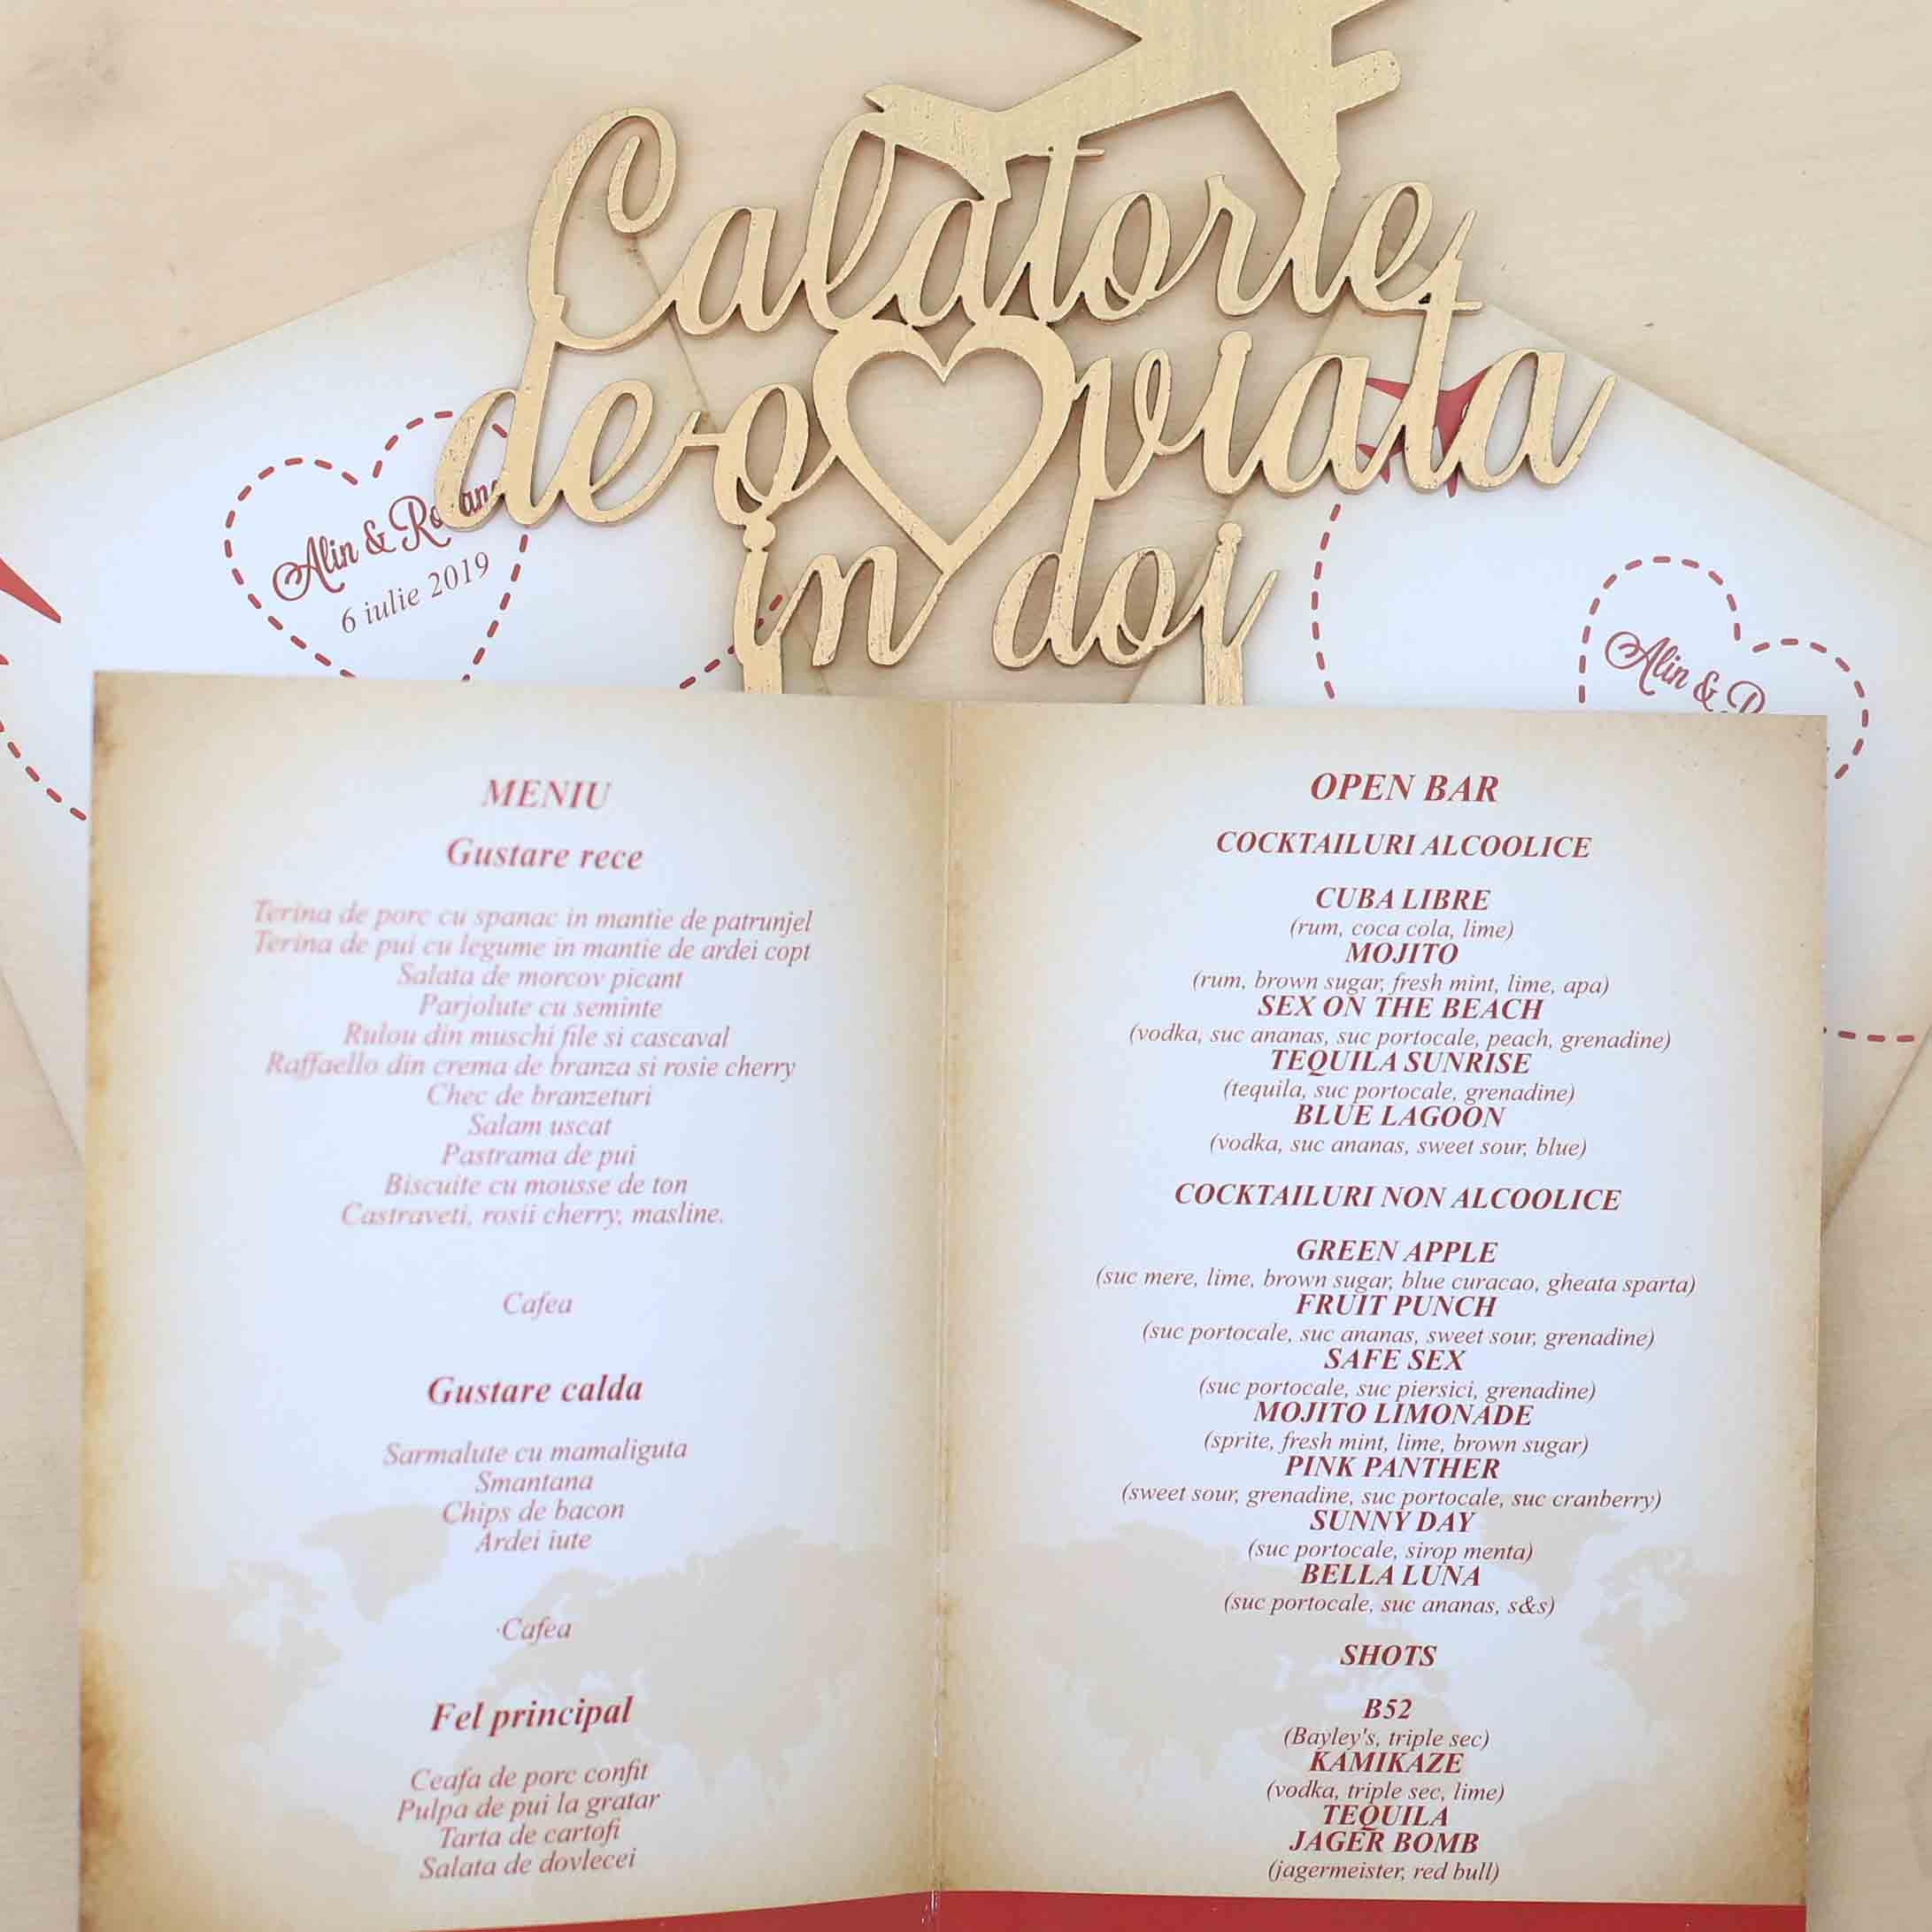 Calatorie
de-o viata
in doi
Alin &
6 iulie 2019
Alin &
MENIU
Gustare rece
Terina de porc cu spanac in mantie de patrunjel
Terina de pui cu legume in mantie de ardei copt
Salata de morcov picant
Parjolute cu seminte
Rulou din muschi file si cascaval
Raffaello din crema de branza si rosie cherry
Chec de branzeturi
Salam uscat
Pastrama de pui
Biscuite cu mousse de ton
Castraveti, rosii cherry, masline.
Cafea
Gustare calda
Sarmalute cu mamaliguta
Smantana
Chips de bacon
Ardei iute
Cafea
Fel principal
Ceafa de porc confit
Pulpa de pui la gratar
Tarta de cartofi
Salata de dovlecei
OPEN BAR
COCKTAILURI ALCOOLICE
CUBA LIBRE
(rum, coca cola, lime)
MOJITO
(rum, brown sugar, fresh mint, lime, apa)
SEX ON THE BEACH
(vodka, suc ananas, suc portocale, peach, grenadine)
TEQUILA SUNRISE
(tequila, suc portocale, grenadine)
BLUE LAGOON
(vodka, suc ananas, sweet sour, blue)
COCKTAILURI NON ALCOOLICE
GREEN APPLE
(suc mere, lime, brown sugar, blue curacao, gheata sparta)
FRUIT PUNCH
(suc portocale, suc ananas, sweet sour, grenadine)
SAFE SEX
(suc portocale, suc piersici, grenadine)
MOJITO LIMONADE
(sprite, fresh mint, lime, brown sugar)
PINK PANTHER
(sweet sour, grenadine, suc portocale, suc cranberry)
SUNNY DAY
(suc portocale, sirop menta)
BELLA LUNA
(suc portocale, suc ananas, s&s)
SHOTS
B52
(Bayley's, triple sec)
KAMIKAZE
(vodka, triple sec, lime)
TEQUILA
JAGER BOMB
(jagermeister, red bull)